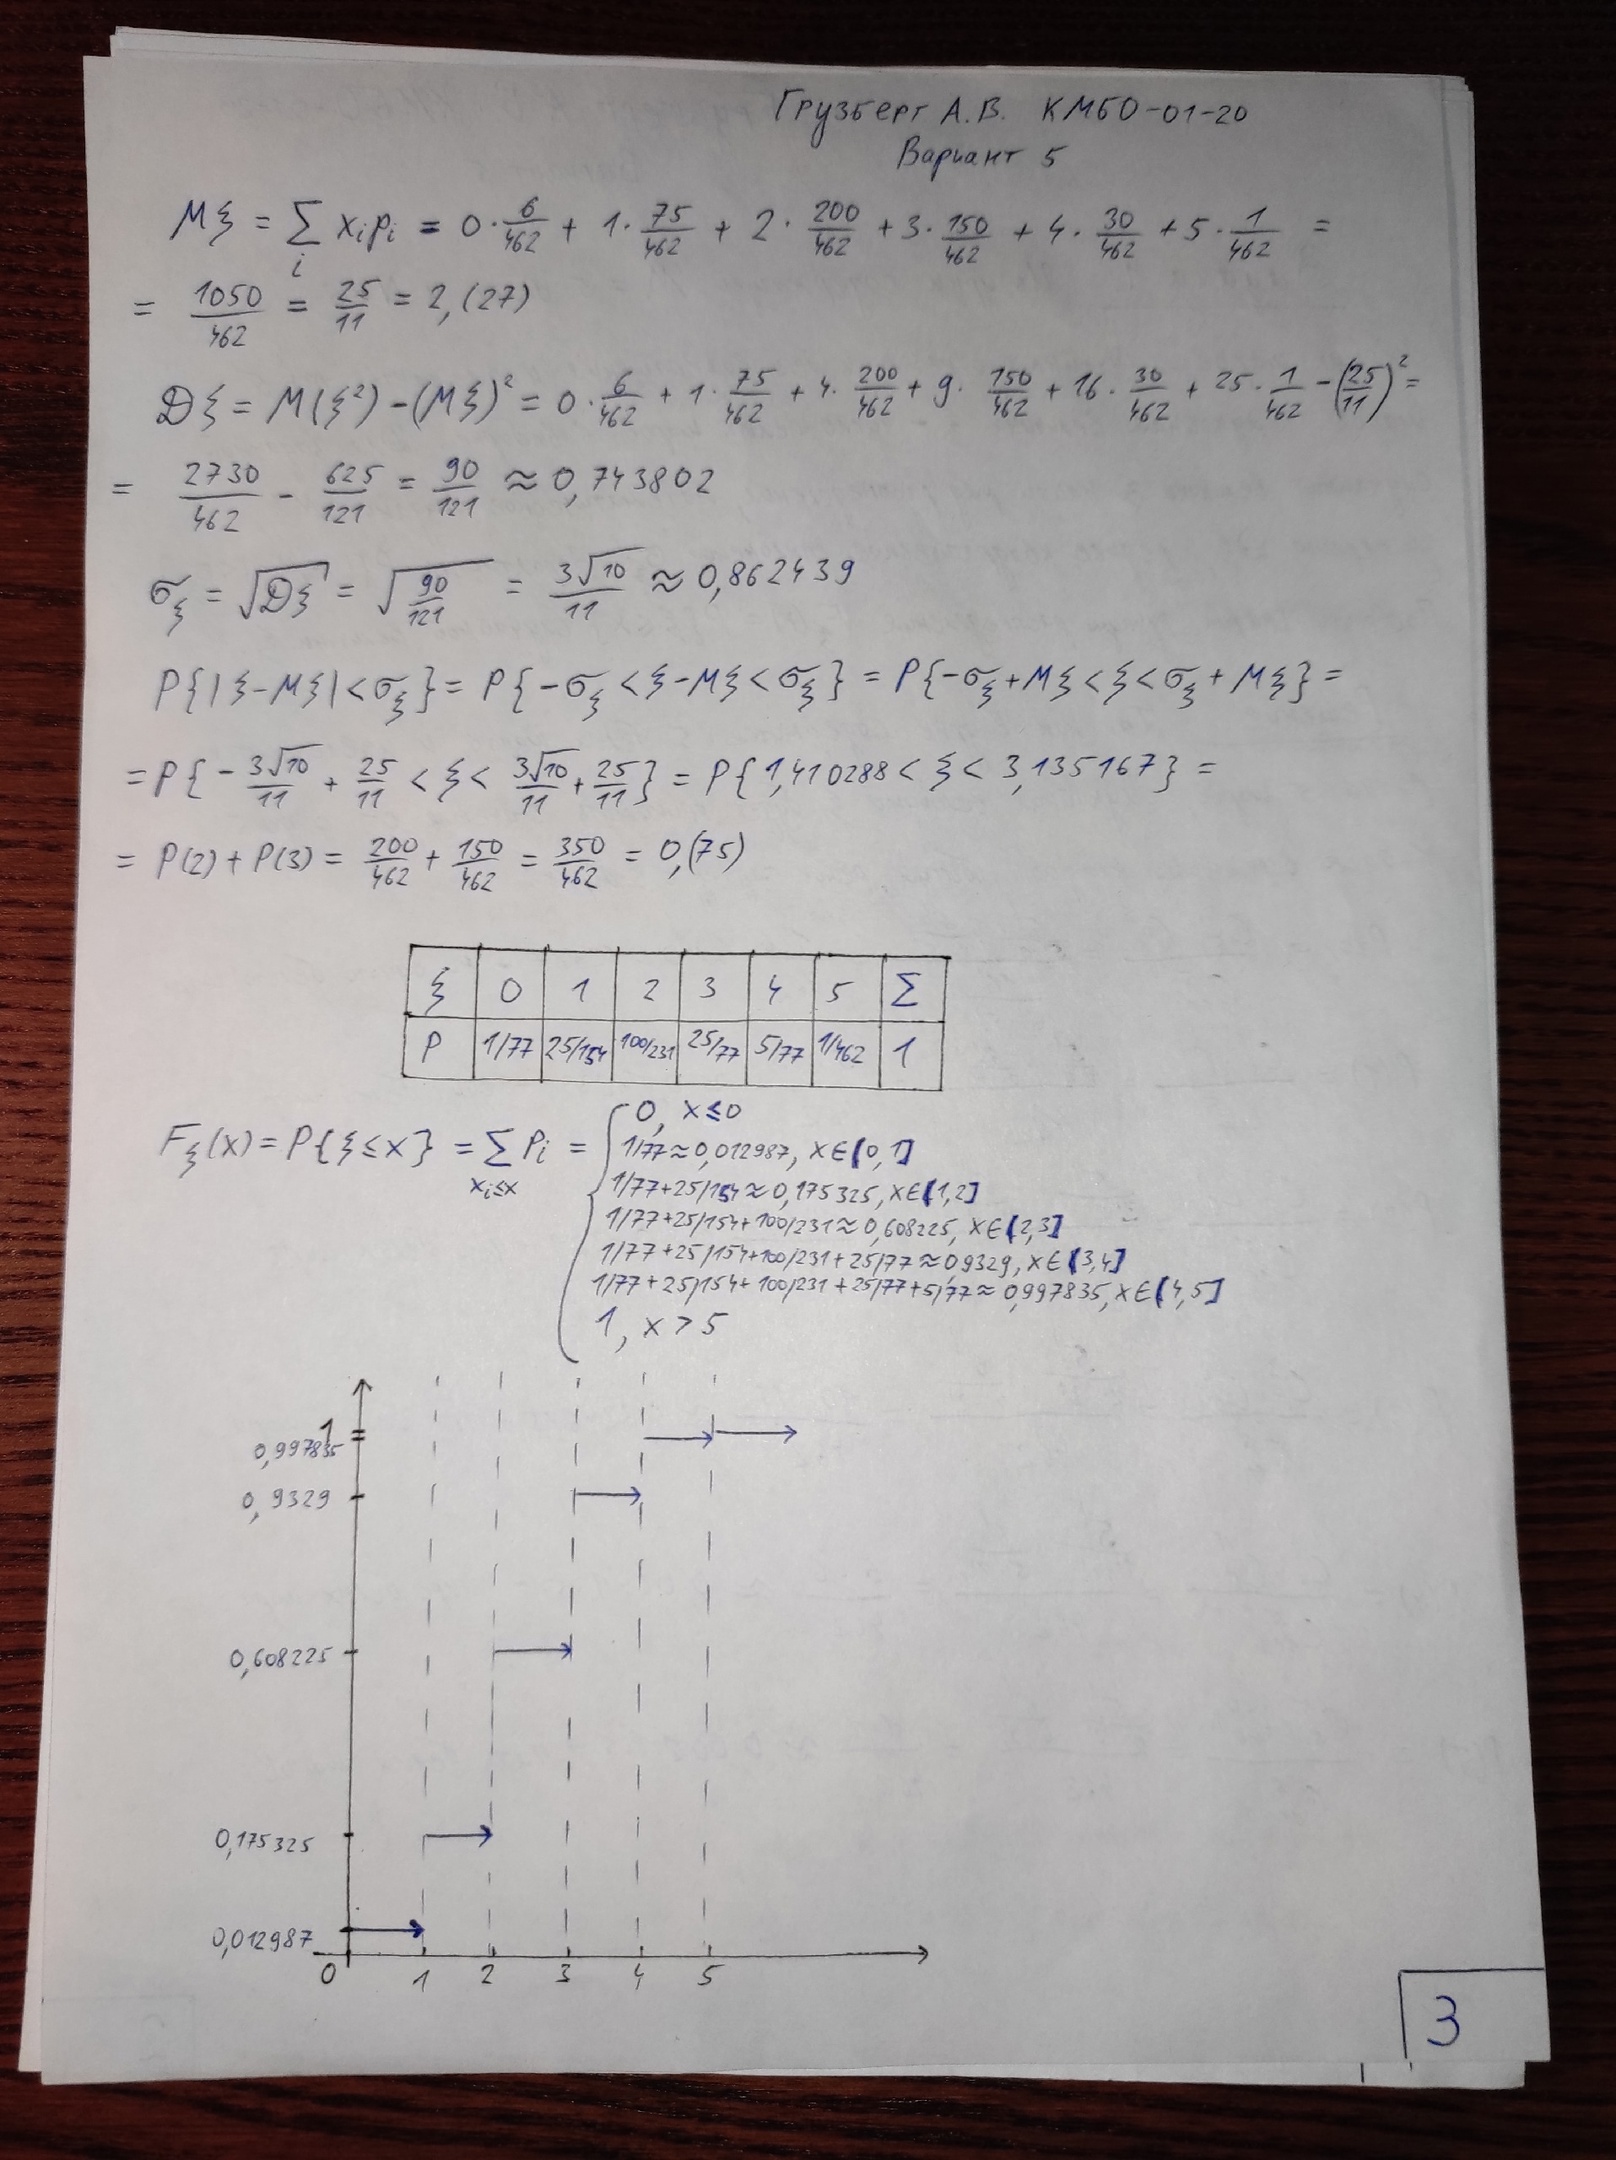 Грузберг А.В. КМБО-01-20
Вариант 5
Mξ = Σ xᵢpᵢ = 0·6/462 + 1·75/462 + 2·200/462 + 3·150/462 + 4·30/462 + 5·1/462 =
i
= 1050/462 = 25/11 = 2,(27)
Dξ = M(ξ²) - (Mξ)² = 0·6/462 + 1·75/462 + 4·200/462 + 9·150/462 + 16·30/462 + 25·1/462 - (25/11)² =
= 2730/462 - 625/121 = 90/121 ≈ 0,743802
σξ = √Dξ = √90/121 = 3√10/11 ≈ 0,862439
P{|ξ-Mξ|<σξ} = P{-σξ<ξ-Mξ<σξ} = P{-σξ+Mξ<ξ<σξ+Mξ} =
= P{-3√10/11 + 25/11 < ξ < 3√10/11 + 25/11} = P{1,410288 < ξ < 3,135167} =
= P(2) + P(3) = 200/462 + 150/462 = 350/462 = 0,(75)
ξ 0 1 2 3 4 5 Σ
P 1/77 25/154 100/231 25/77 5/77 1/462 1
0, x≤0
Fξ(x) = P{ξ≤x} = Σ pᵢ =
xᵢ≤x
1/77≈0,012987, x∈(0,1]
1/77+25/154≈0,175325, x∈(1,2]
1/77+25/154+100/231≈0,608225, x∈(2,3]
1/77+25/154+100/231+25/77≈0,9329, x∈(3,4]
1/77+25/154+100/231+25/77+5/77≈0,997835, x∈(4,5]
1, x>5
1
0,997835
0,9329
0,608225
0,175325
0,012987
0 1 2 3 4 5
3